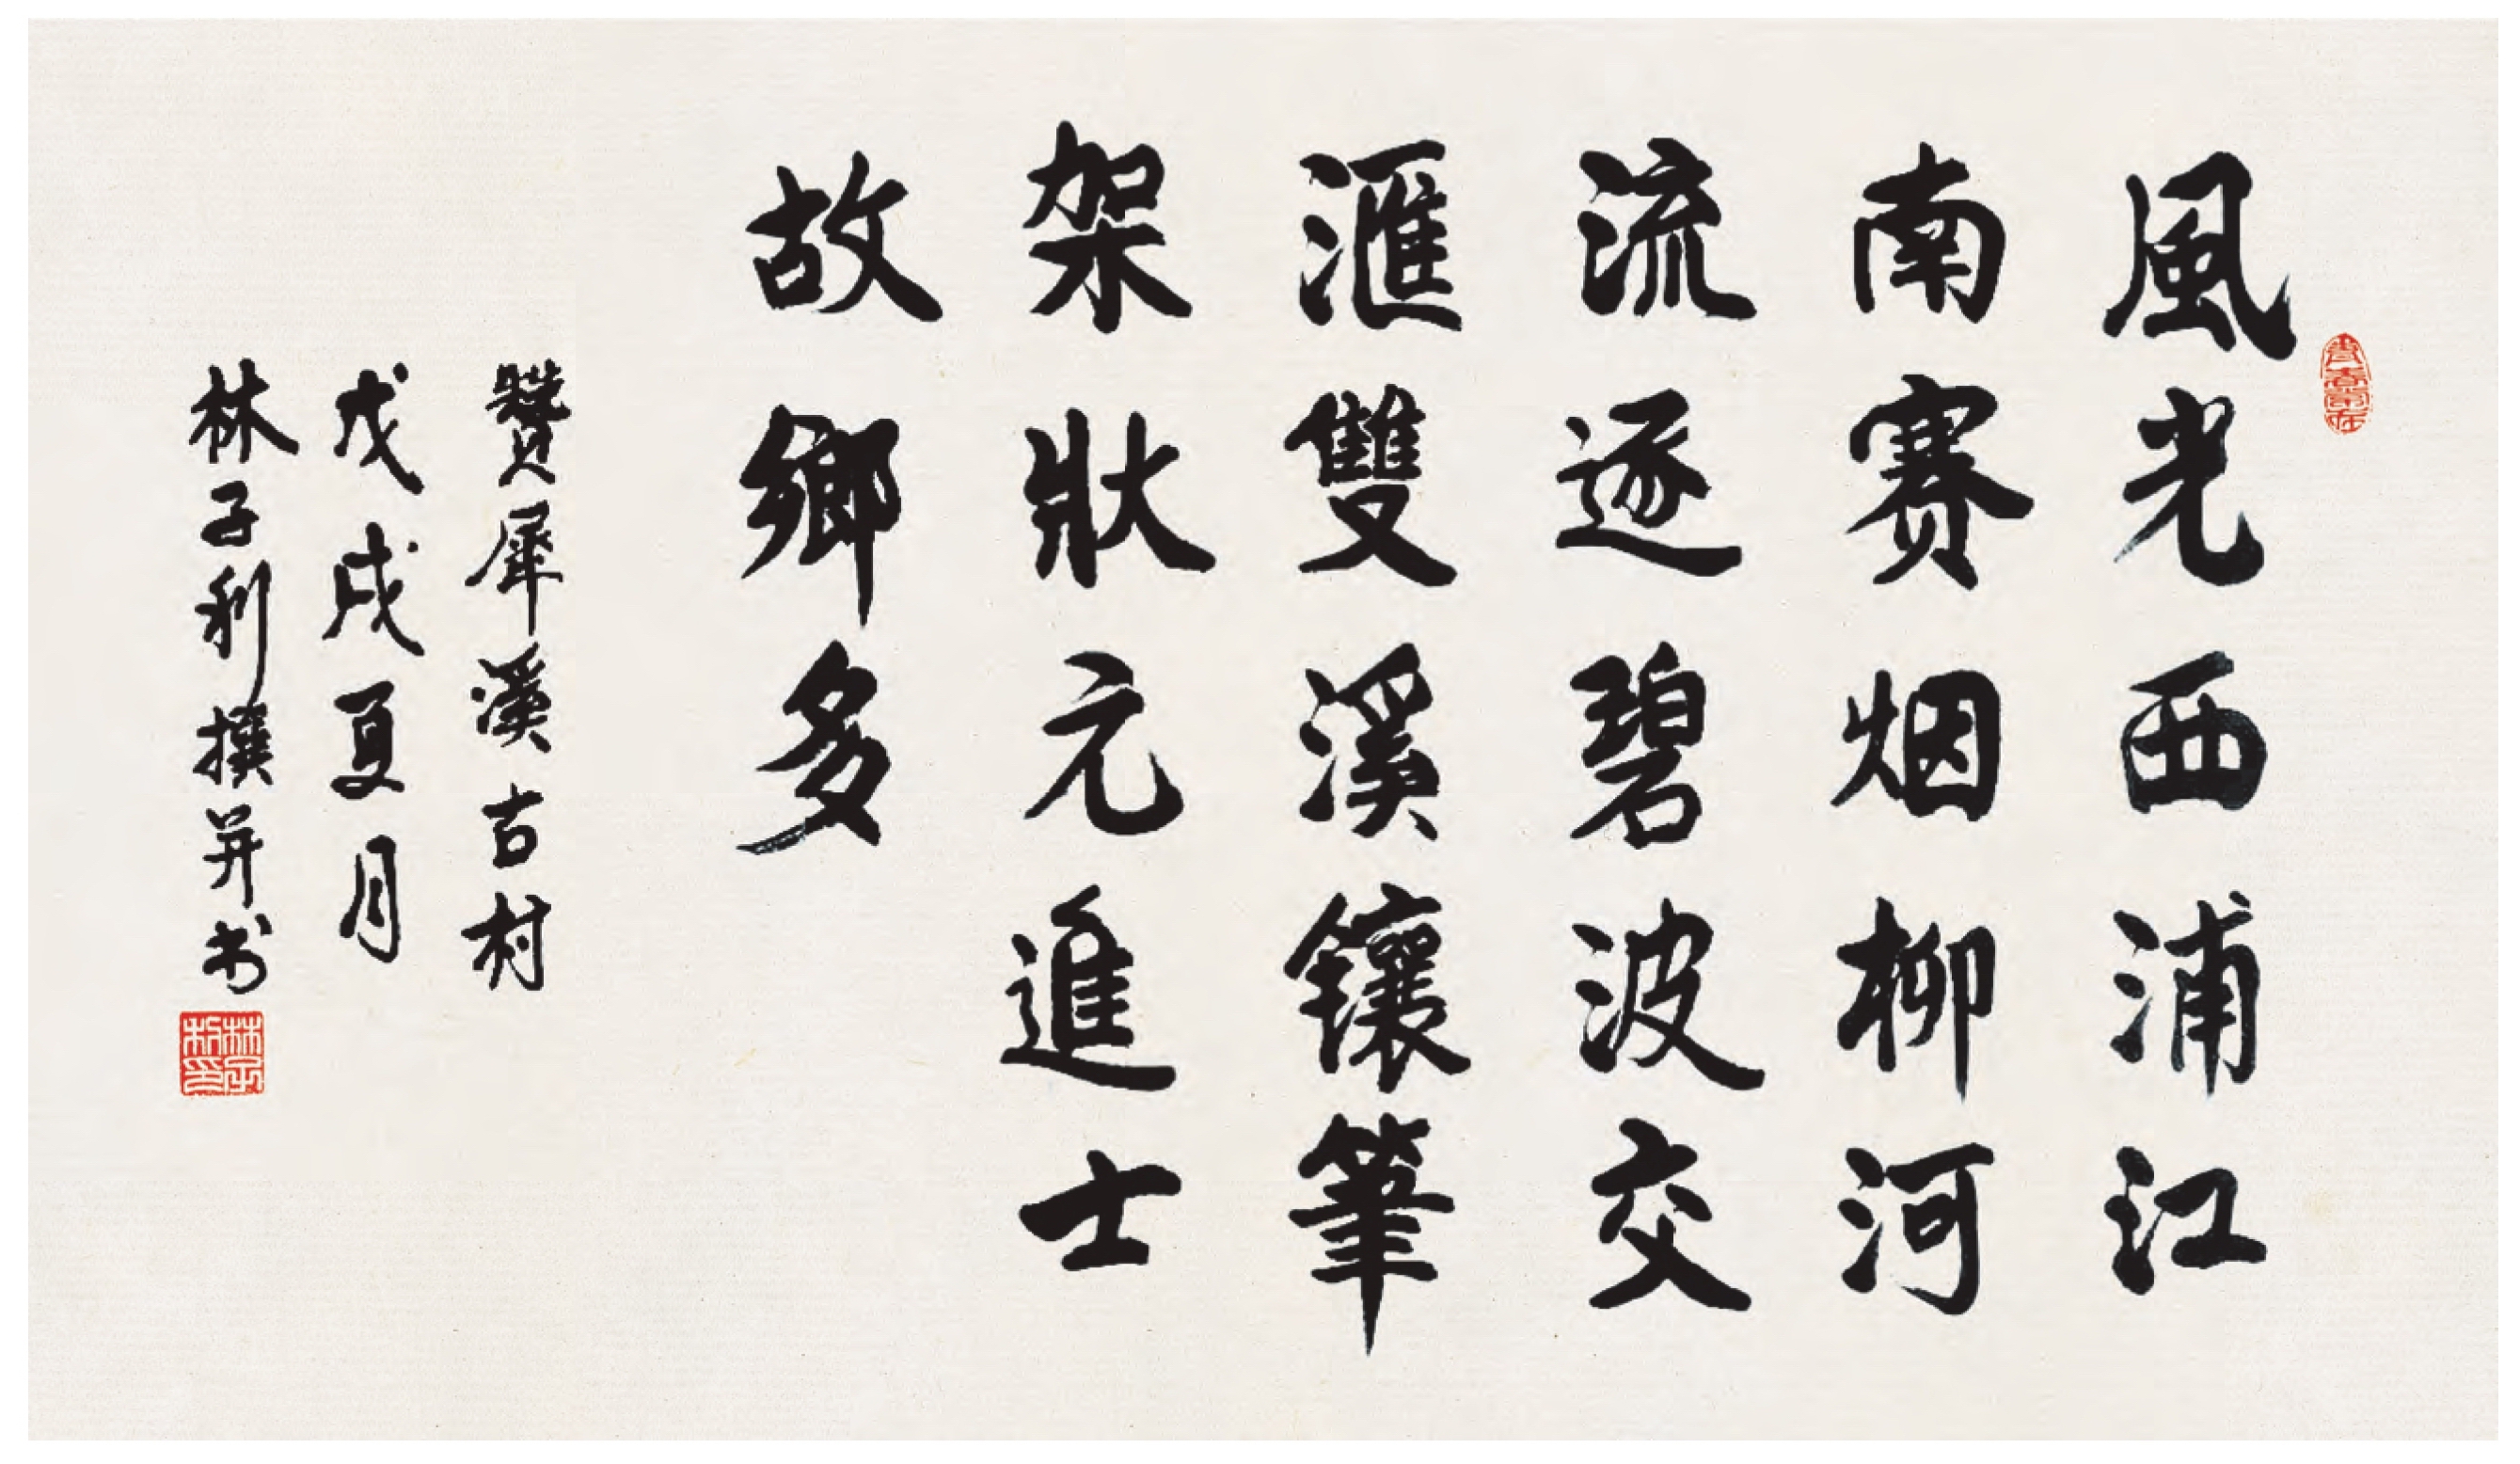 風光西浦江
南賽烟柳河
流逐碧波交
滙雙溪鑲筆
架狀元進士
故鄉多
贊犀溪古村
戊戌夏月
林子利撰并书